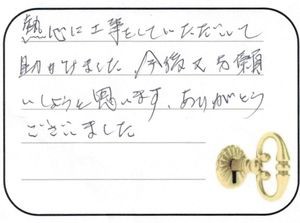 熱心に工事をしていただいて
助かりました 今後又お願
いしようと思います、ありがとう
ございました